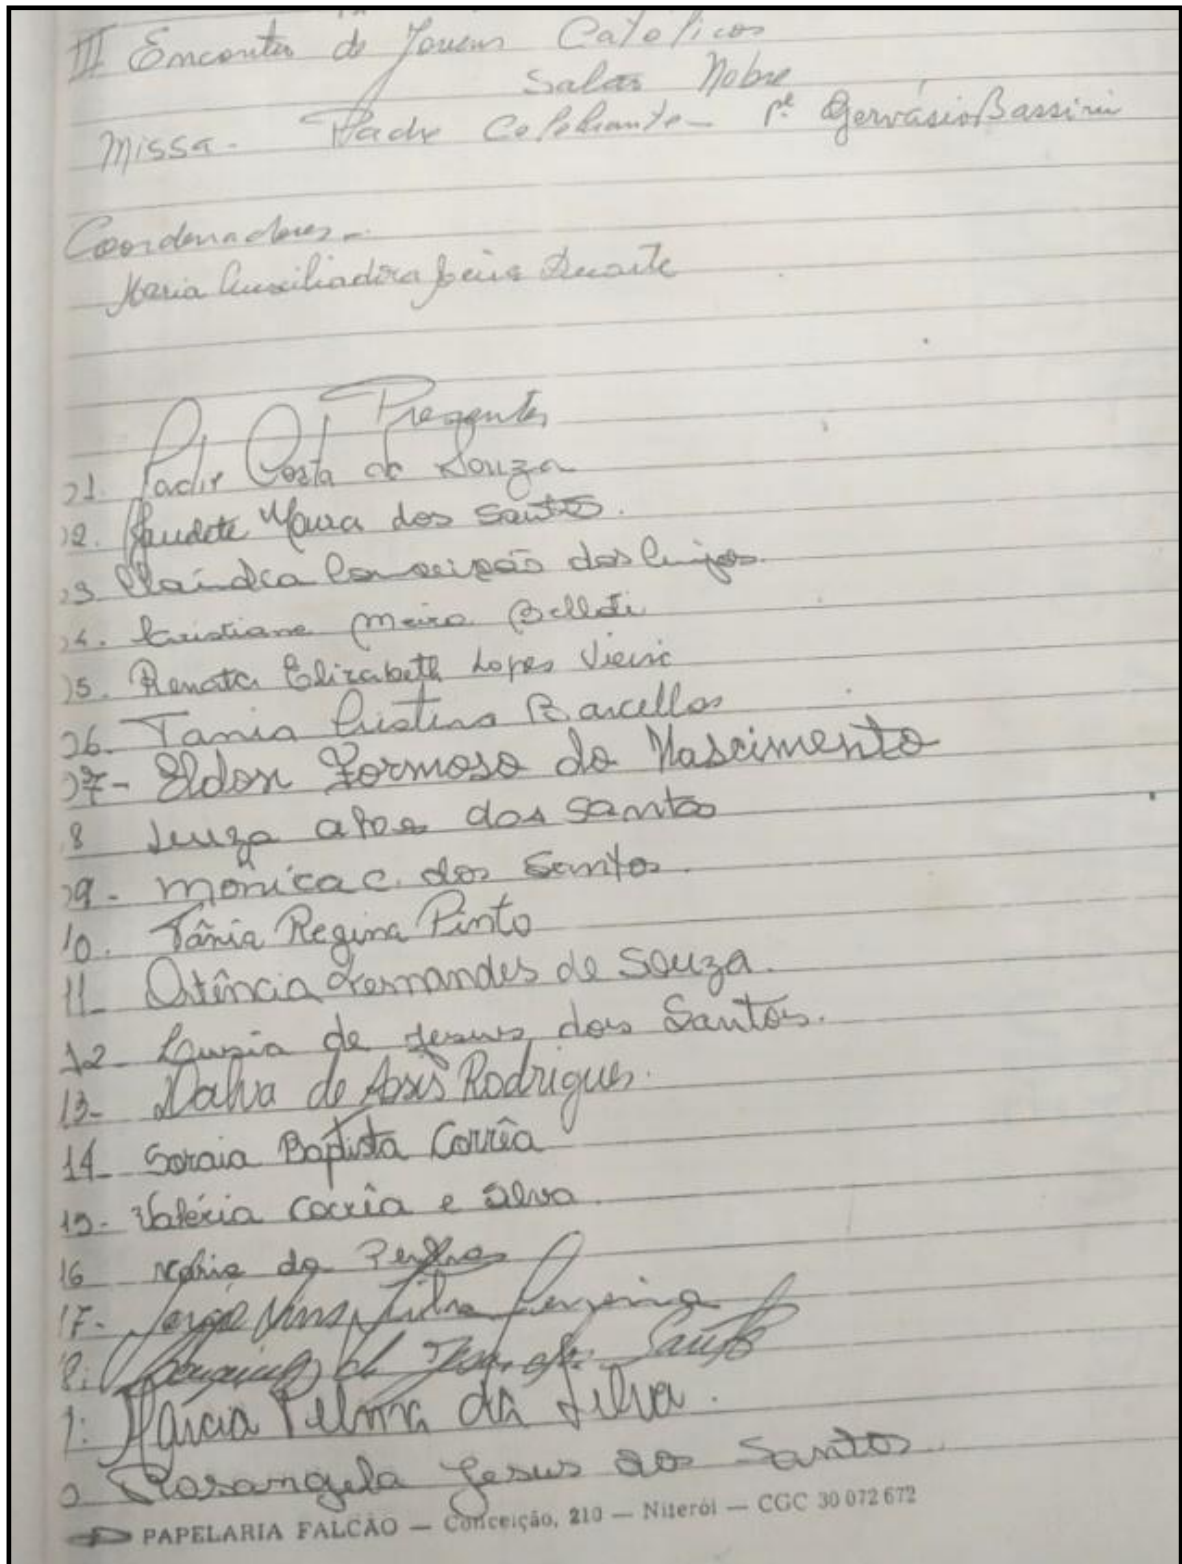 III Encontro de Jovens Catolicos
Salão Nobre
Missa - Padre Celebrante - Pe Gervásio Bassini
Coordenadores -
Maria Auxiliadora Duarte
Presentes
01. Costa de Souza
02. Maura dos Santos.
03 Conceição dos Anjos.
04. Cristiane Meire Belloti
05. Renata Elizabeth Lopes Vieira
06. Tania Cristina Barcellos
07- Eldon Formoso do Nascimento
8 dos Santos
09- Monica C. dos Santos.
10. Tânia Regina Pinto
11- Ortência Fernandes de Souza.
12- Luzia de Jesus dos Santos.
13- Dalva de Assis Rodrigues.
14- Soraia Baptista Corrêa
15- Valéria Corrêa e Silva.
16 Maria da Penha
17- Jorge Silva Ferreira
8. Santos
9: Marcia Telma da Silva.
0 Rosangela Jesus dos Santos
PAPELARIA FALCÃO — Conceição, 210 — Niterói — CGC 30 072 672